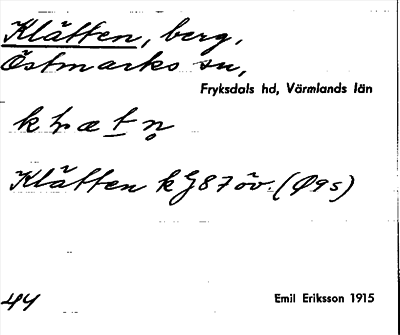 Klätten, berg,
Östmarks sn,
Fryksdals hd, Värmlands län
Klätten kG87öv. (Ø95)
44
Emil Eriksson 1915